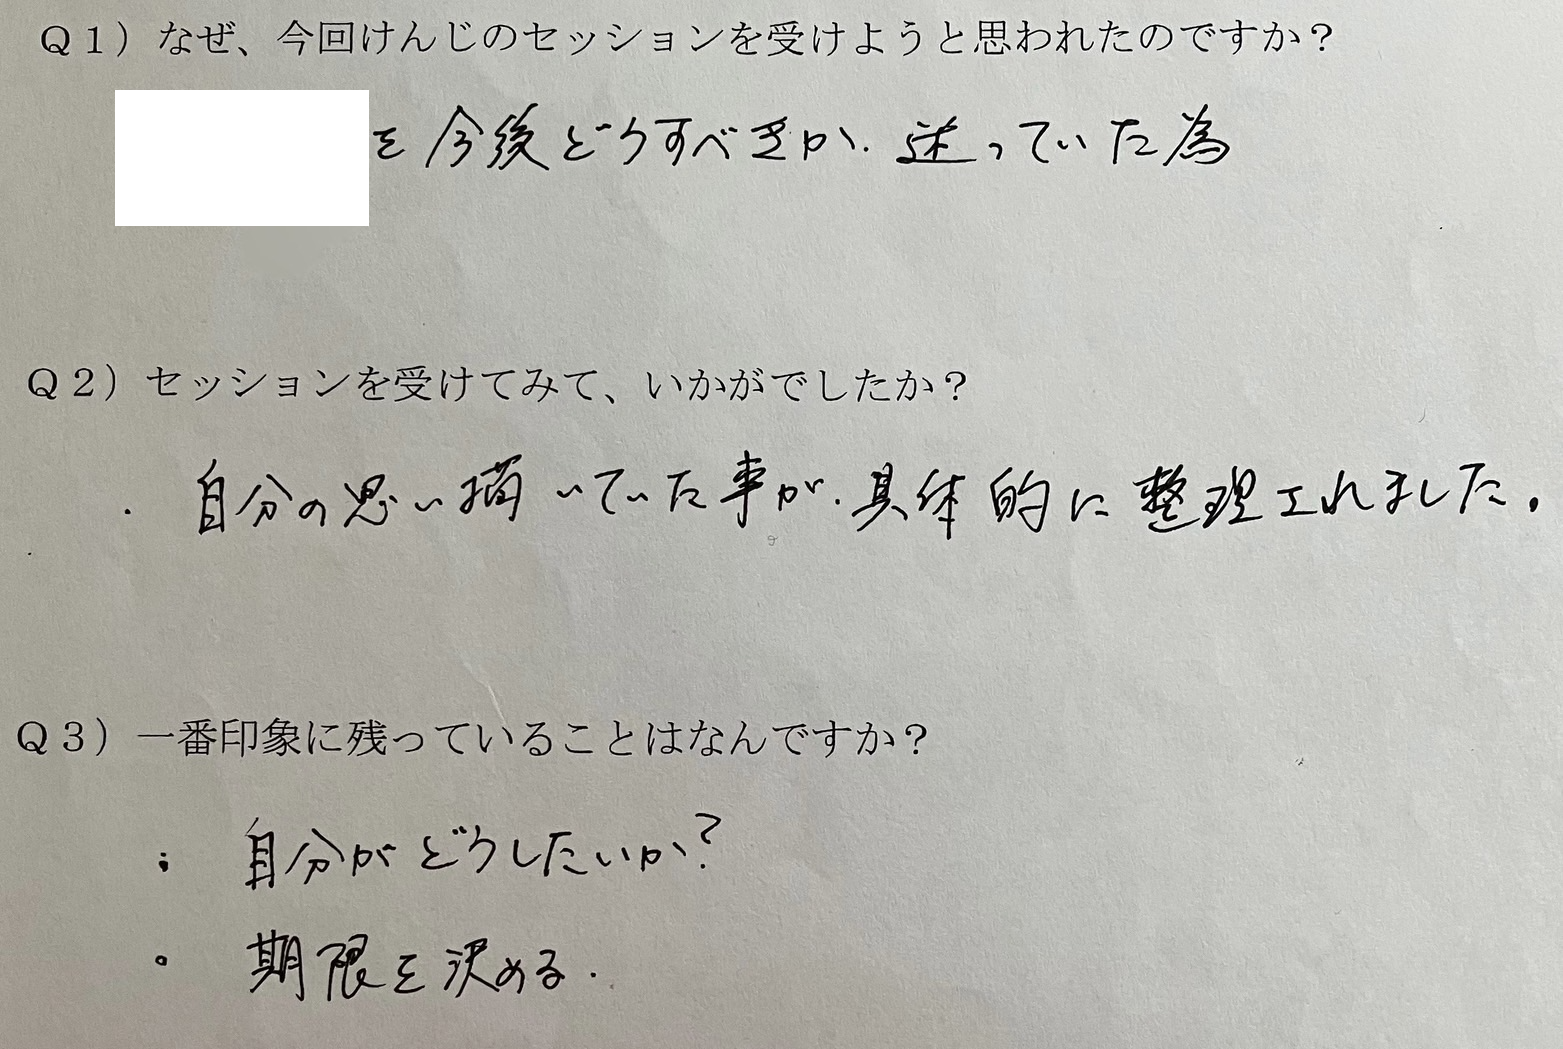 Q1）なぜ、今回けんじのセッションを受けようと思われたのですか？
を今後どうすべきか、迷っていた為
Q2）セッションを受けてみて、いかがでしたか？
・自分の思い描いていた事が、具体的に整理されました。
Q3）一番印象に残っていることはなんですか？
・自分がどうしたいか?
・期限を決める.